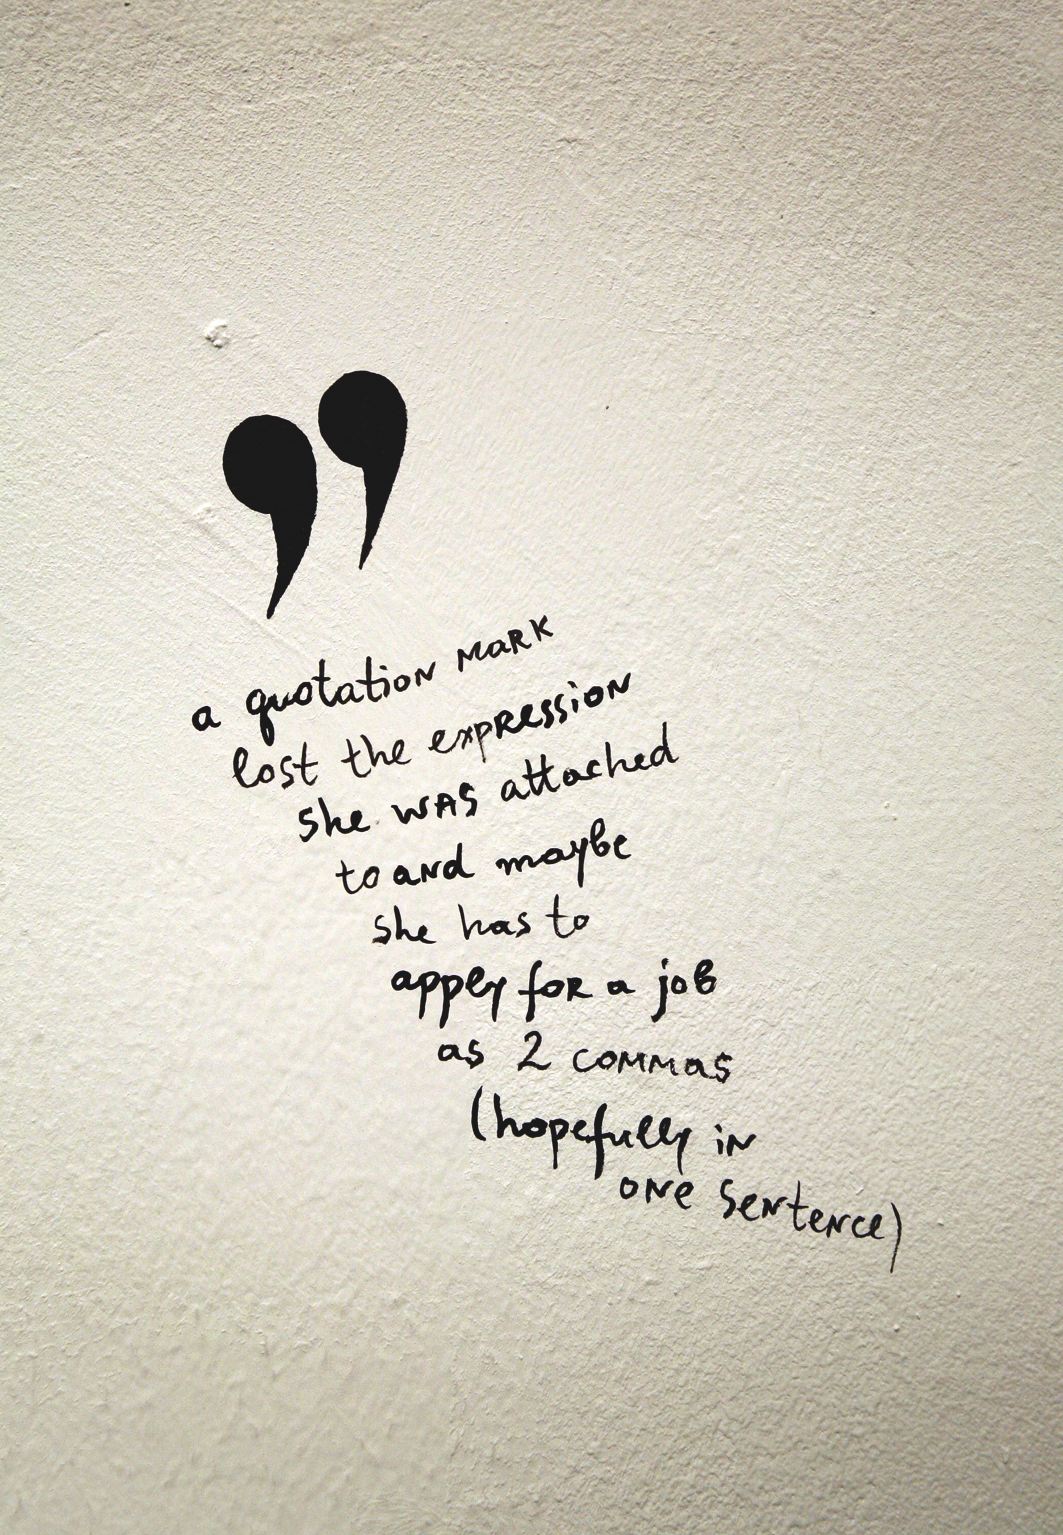 ”
a quotation mark
lost the expression
she was attached
to and maybe
she has to
apply for a job
as 2 commas
(hopefully in
one sentence)